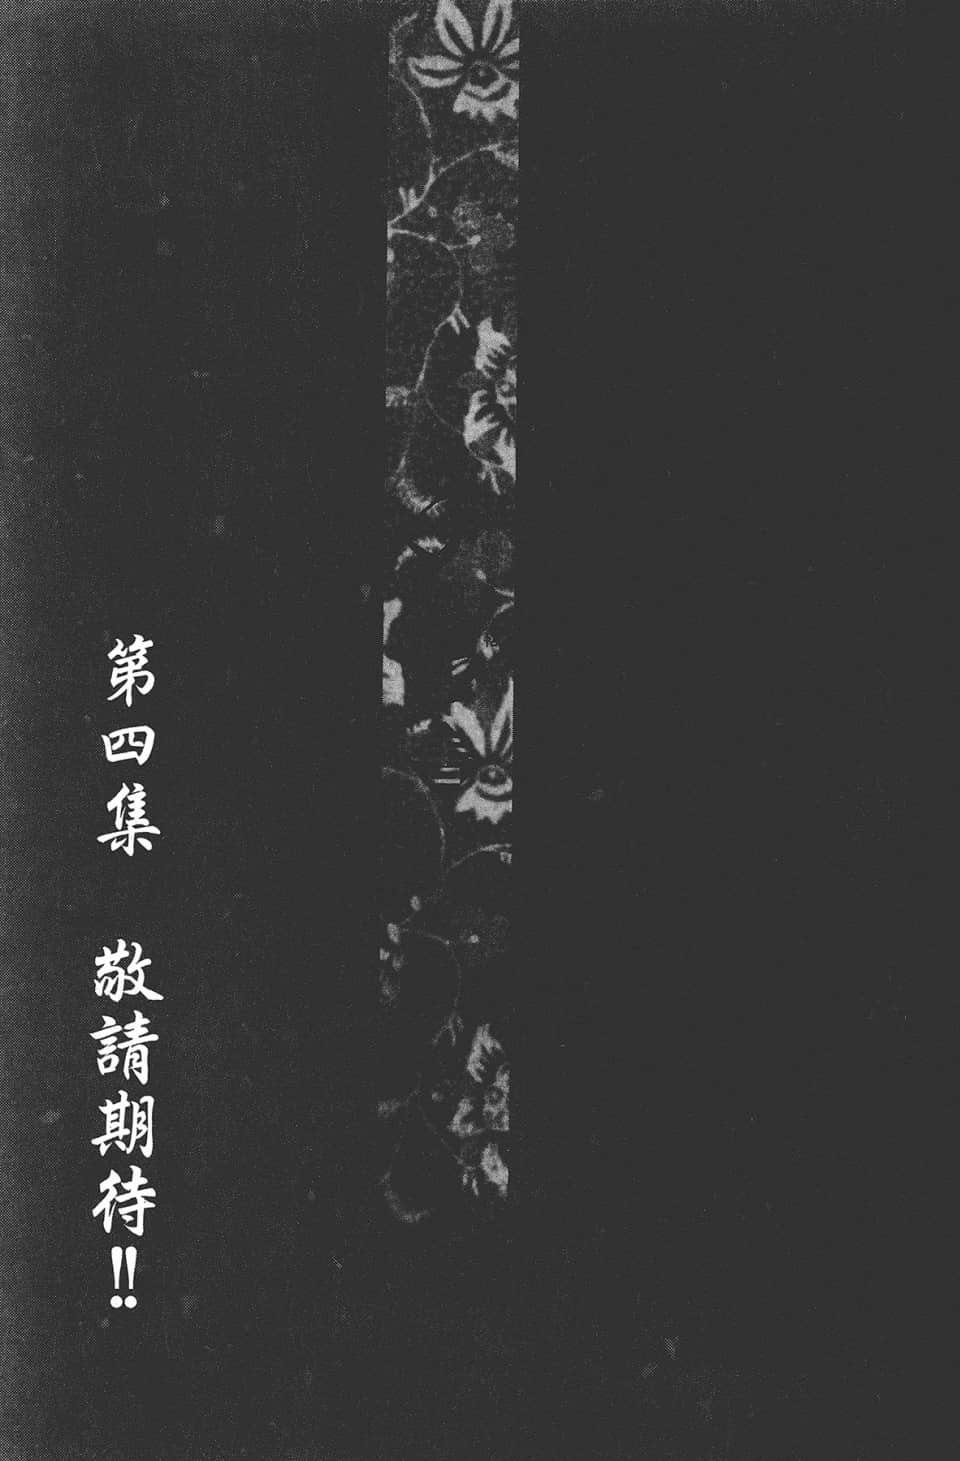 第四集　敬請期待!!